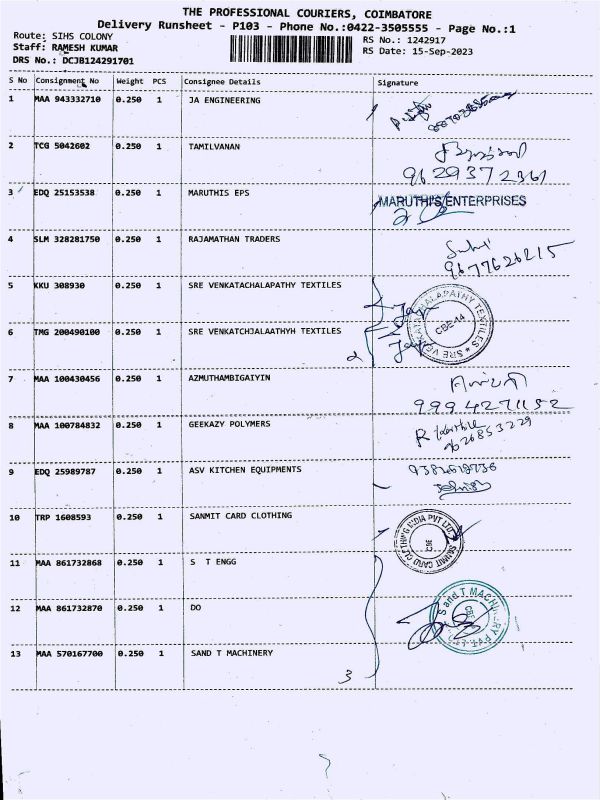 THE PROFESSIONAL COURIERS, COIMBATORE
Delivery Runsheet - P103 - Phone No.:0422-3505555 - Page No.:1
Route: SIHS COLONY
Staff: RAMESH KUMAR
DRS No.: DCJB124291701
RS No.: 1242917
RS Date: 15-Sep-2023
S No Consignment No Weight PCS Consignee Details Signature
1 MAA 943332710 0.250 1 JA ENGINEERING
2 TCG 5042602 0.250 1 TAMILVANAN
9629372361
3 EDQ 25153538 0.250 1 MARUTHIS EPS MARUTHIS ENTERPRISES
4 SLM 328281750 0.250 1 RAJAMATHAN TRADERS
9677626215
5 KKU 308930 0.250 1 SRE VENKATACHALAPATHY TEXTILES
SRE VENKATACHALAPATHY TEXTILES
CBE-14
6 TMG 200490100 0.250 1 SRE VENKATCHJALAATHYH TEXTILES
2
7 MAA 100430456 0.250 1 AZMUTHAMBIGAIYIN
9994271152
8 MAA 100784832 0.250 1 GEEKAZY POLYMERS
9626853229
9 EDQ 25989787 0.250 1 ASV KITCHEN EQUIPMENTS
10 TRP 1608593 0.250 1 SANMIT CARD CLOTHING
SANMIT CARD CLOTHING INDIA PVT LTD
CBE
11 MAA 861732868 0.250 1 S T ENGG
12 MAA 861732870 0.250 1 DO
S and T MACHINERY PVT. LTD.
CBE
13 MAA 570167700 0.250 1 SAND T MACHINERY
3